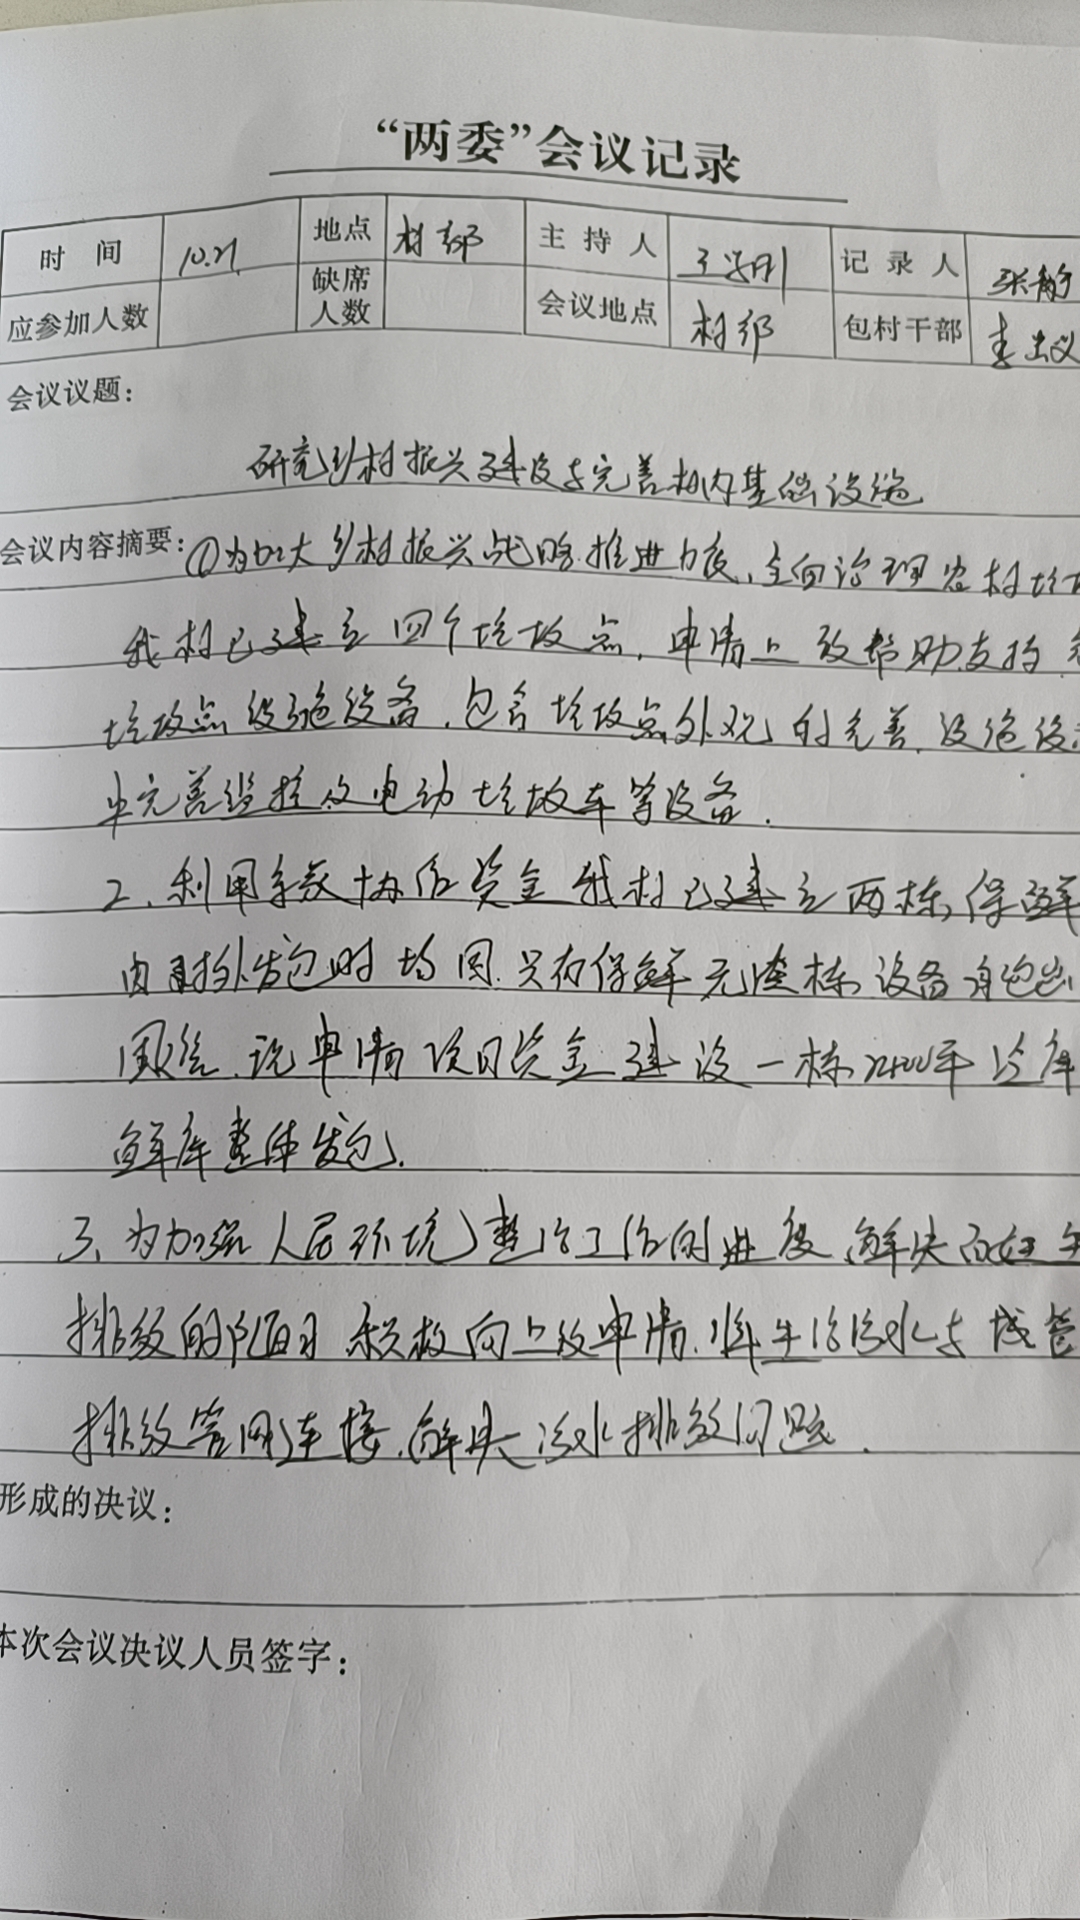 “两委”会议记录
时间 10.21 地点 村部 主持人 王学刚 记录人 张静
应参加人数 缺席人数 会议地点 村部 包村干部 李
会议议题：
研究乡村振兴建设与完善村内基础设施
会议内容摘要：①为加大乡村振兴战略推进力度，全面治理农村垃
我村已建立四个垃圾点，申请上级帮助支持
垃圾点设施设备，包含垃圾点外观的完善，设施设
中完善监控及电动垃圾车等设备．
2、利用 协作资金我村已建立两栋保鲜
由 对外发包时 只有保鲜无 栋设备 包出
困 申请项目资金建设一栋 平冷库
鲜库整体发包．
3、为加强人居环境整治工作的进度，解决
排放的 积极向上级申请，将生活污水与城管
排放管网连接，解决污水排放问题．
形成的决议：
本次会议决议人员签字：